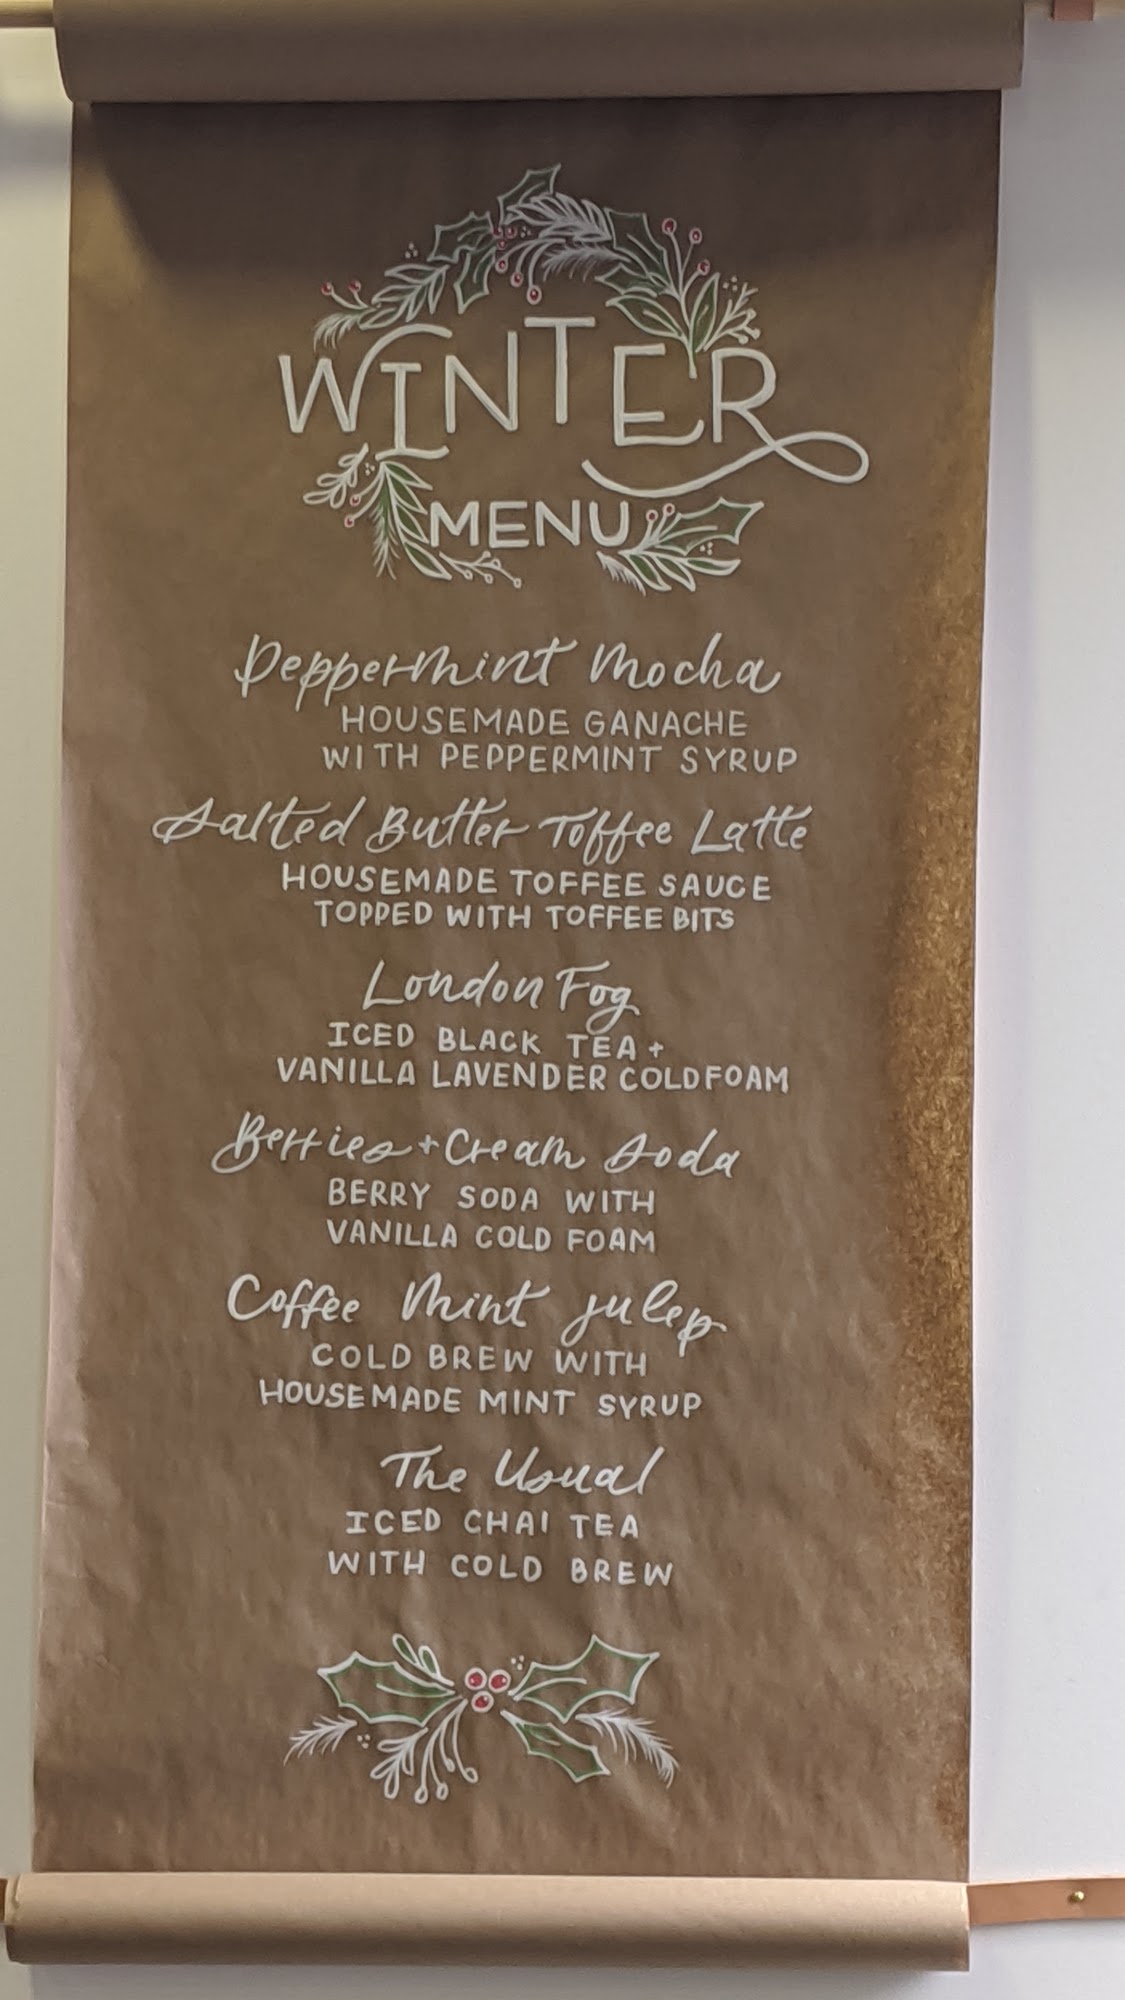 WINTER
MENU
Peppermint Mocha
HOUSEMADE GANACHE
WITH PEPPERMINT SYRUP
Salted Butter Toffee Latte
HOUSEMADE TOFFEE SAUCE
TOPPED WITH TOFFEE BITS
London Fog
ICED BLACK TEA +
VANILLA LAVENDER COLD FOAM
Berries + Cream Soda
BERRY SODA WITH
VANILLA COLD FOAM
Coffee Mint Julep
COLD BREW WITH
HOUSEMADE MINT SYRUP
The Usual
ICED CHAI TEA
WITH COLD BREW